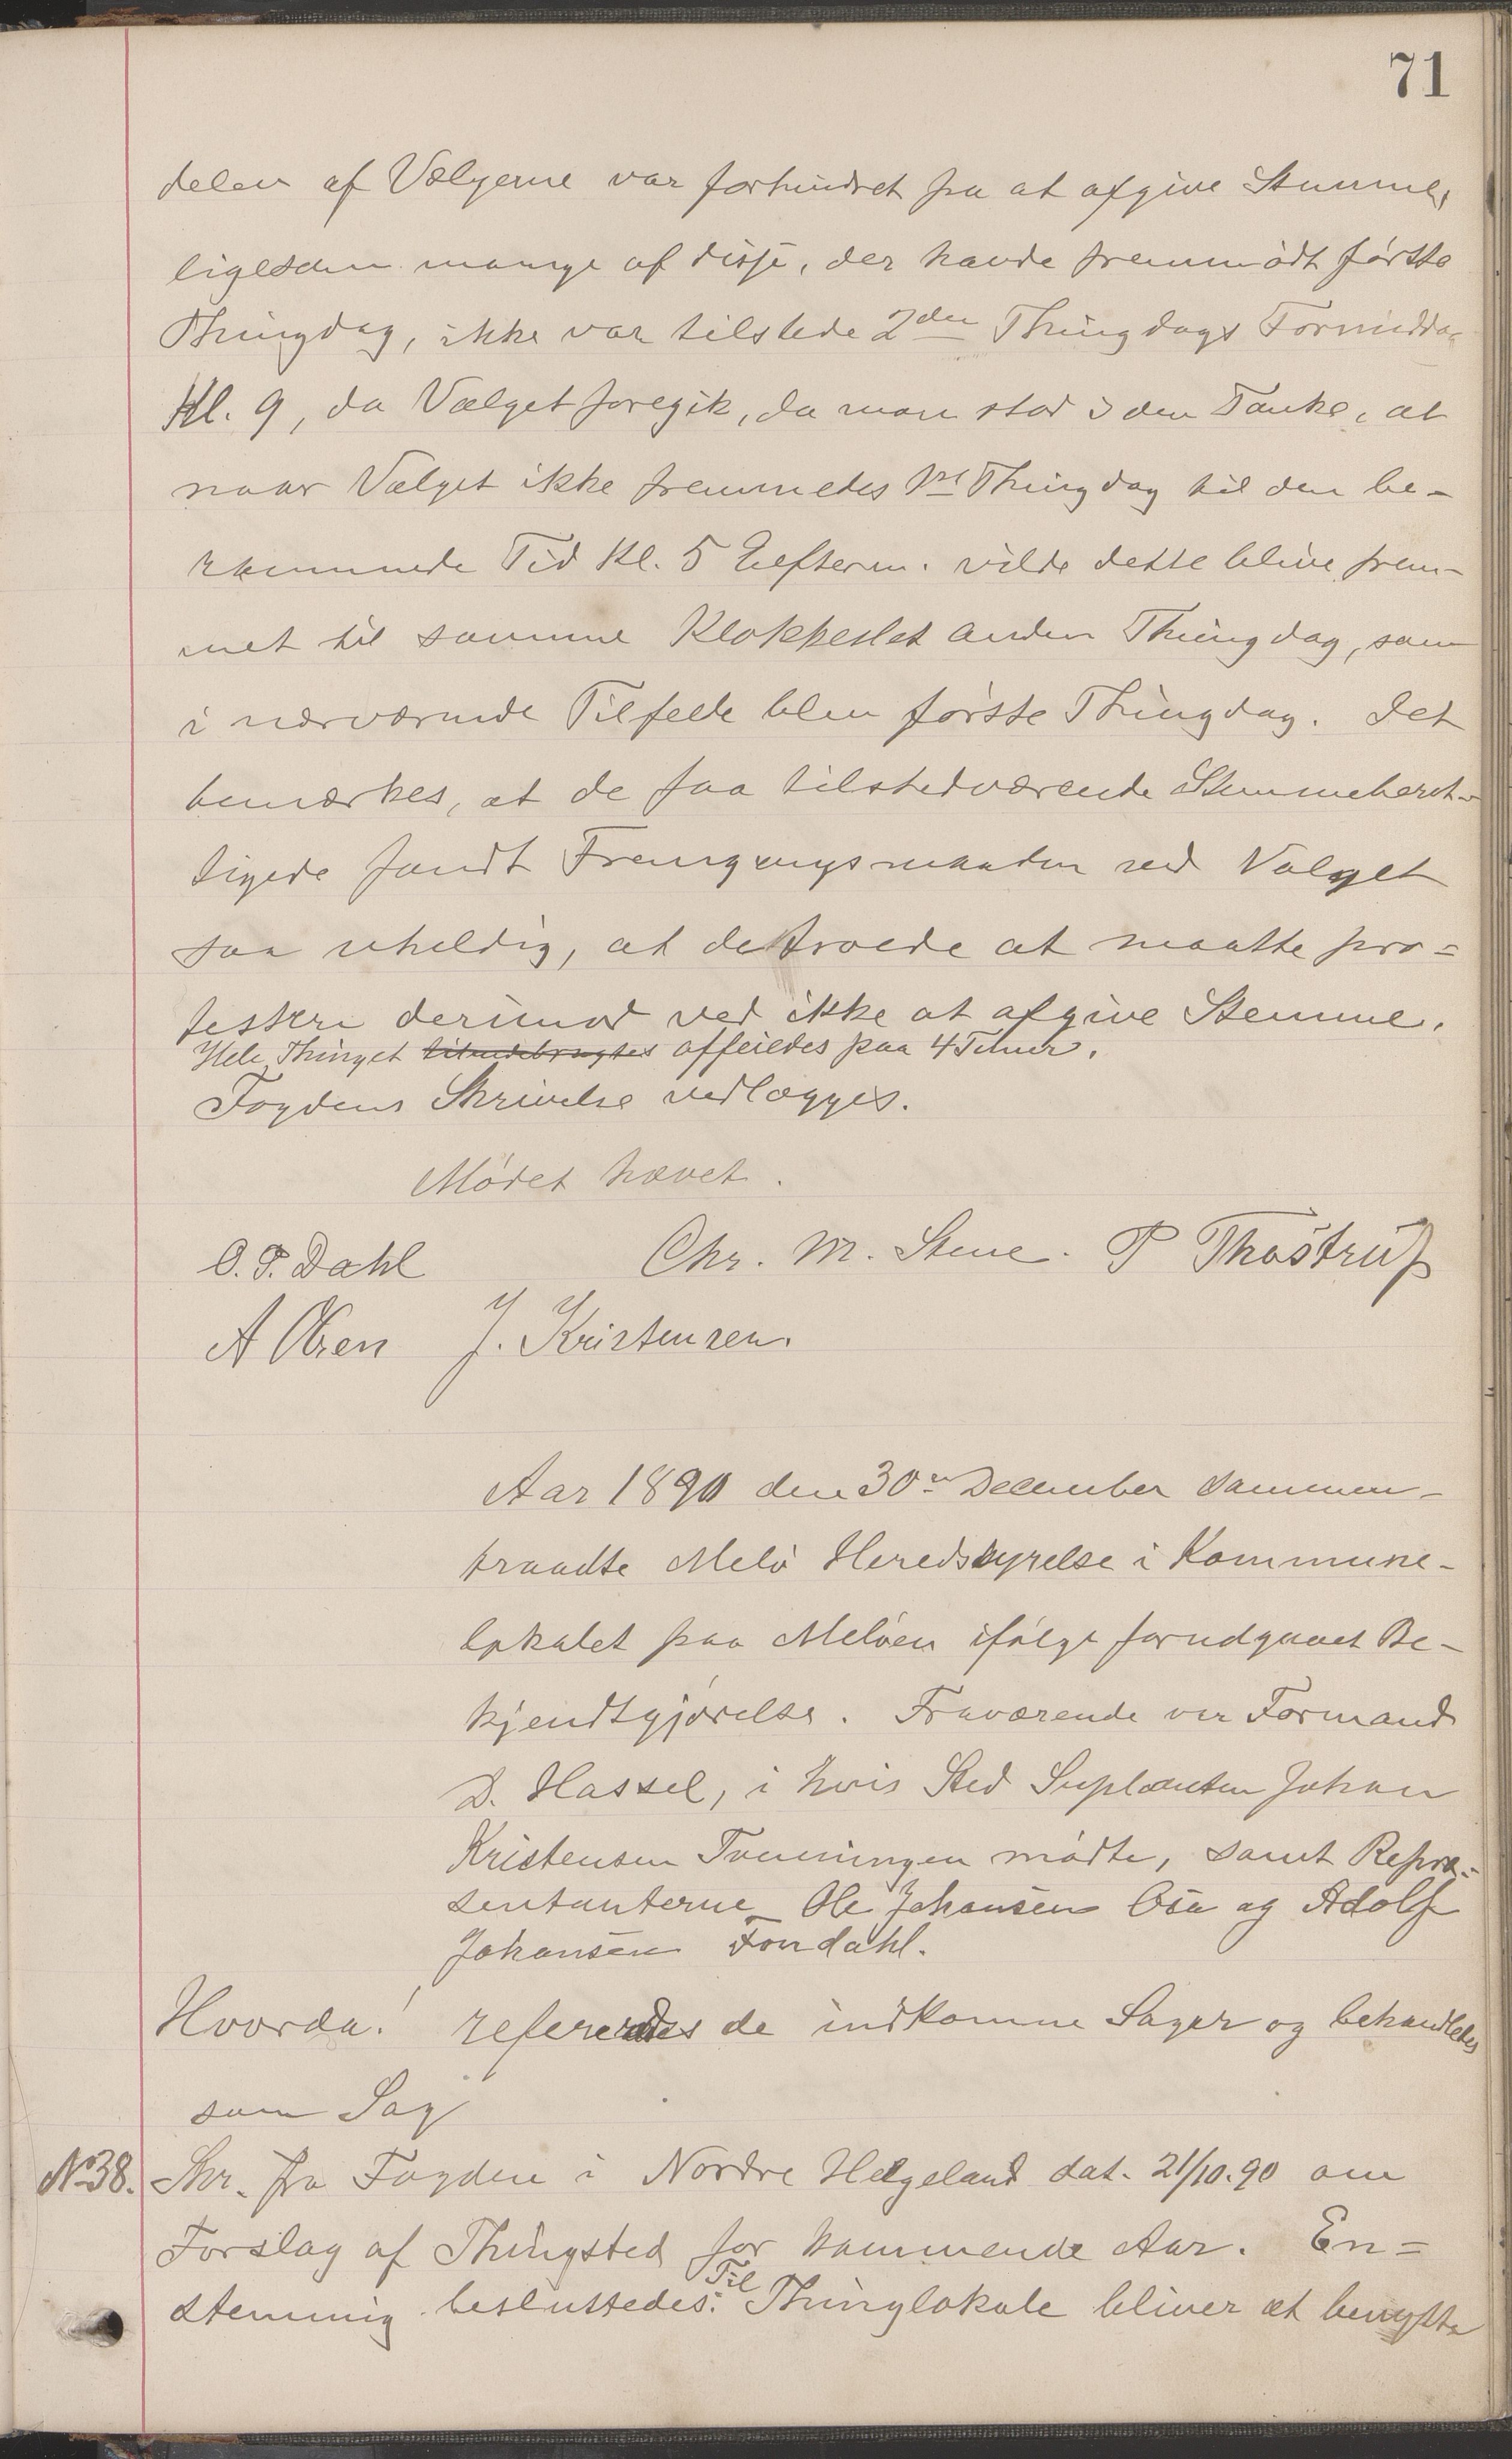 71
delen af Vælgerne var forhindret fra at afgive Stemme,
ligesom mange af disse, der havde fremmødt første
Thingdag, ikke var tilstede 2den Thingdags Formidda
Kl. 9, da Valget foregik, da man stod i den Tanke, at
naar Valget ikke fremmedes 1ste Thingdag til den be-
rammede Tid Kl. 5 Eefterm. vilde dette blive frem-
met til samme Klokkeslet anden Thingdag, som
i nærværende Tilfelde blev første Thingdag. Det
bemærkes, at de faa tilstedværende Stemmeberet-
tigede fandt Fremgangsmaaden ved Valget
saa uheldig, at de troede at maatte pro=
testere derimod ved ikke at afgive Stemme.
Hele Thinget affeiedes paa 4 Timer.
Fogdens Skrivelse vedlægges.
Mødet hævet.
O. P. Dahl Chr. M. Stene. P Thostrup
A Olsen J. Kristensen.
Aar 1890 den 30te December sammen-
traadte Melø Heredstyrelse i Kommune-
lokalet paa Meløen ifølge forudgaaet Be-
kjendtgjørelse. Fraværende var Formand
D. Hassel, i hvis Sted Suplanten Johan
Kristensen Tvenningen mødte, samt Repræ=
sentanterne Ole Johansen Osa og Adolf
Johansen Fondahl.
Hvorda! refereredes de indkomne Sager og behandledes
som Sag
No 38. Skr. fra Fogden i Nordre Helgeland dat. 21/10.90 om
Forslag af Thingsted for kommende Aar. En=
stemmig besluttedes: Til Thinglokale bliver at benytte